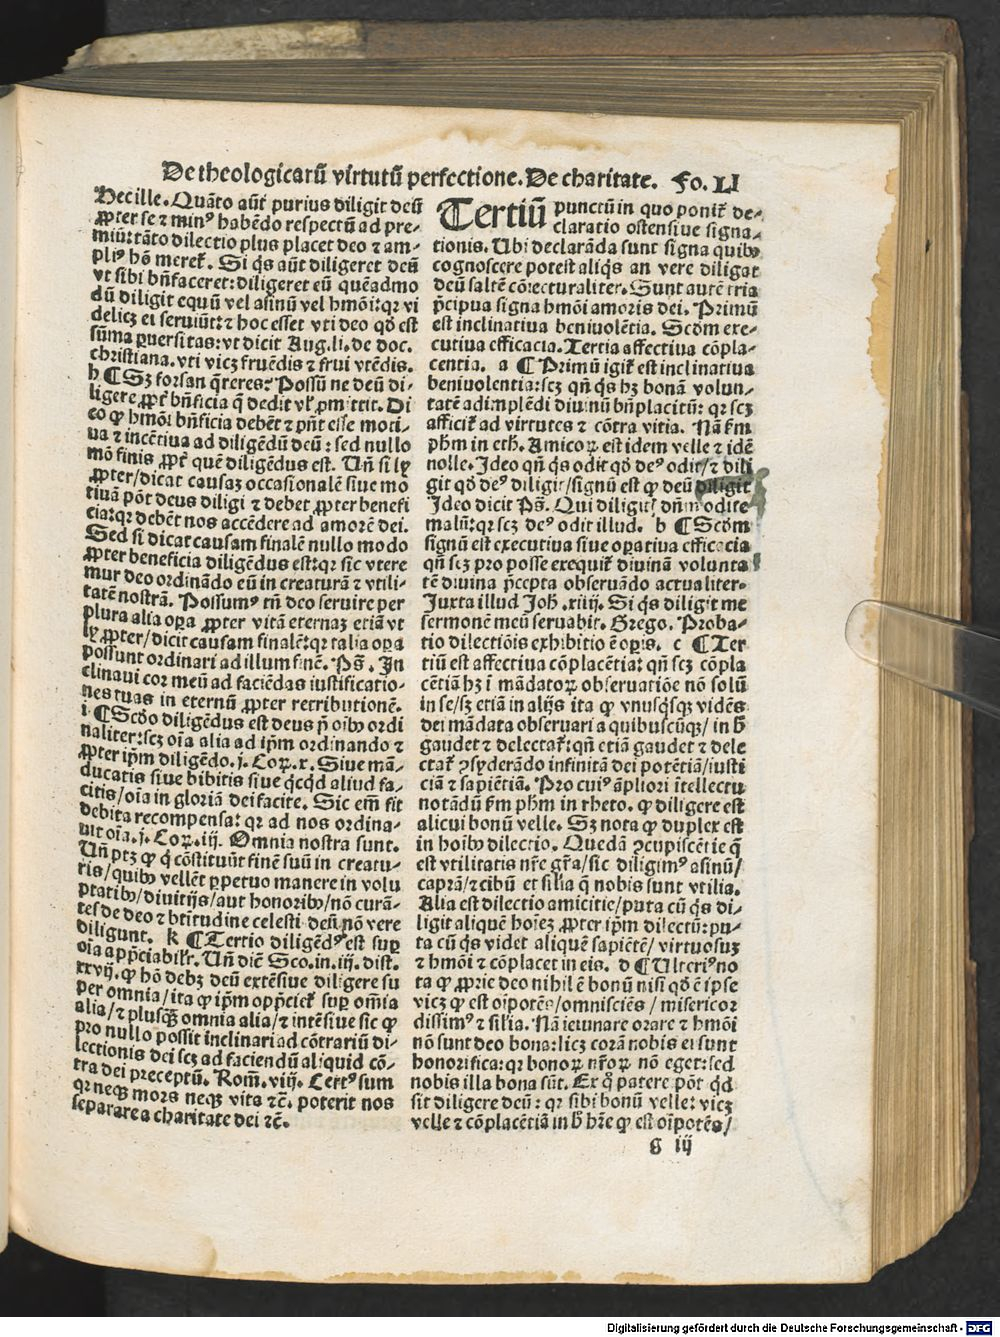 De theologicarū virtutū perfectione. De charitate. Fo. LI
Hec ille. Quāto aūt purius diligit deū
ꝓpter se ⁊ minꝰ habēdo respectū ad pre-
miū: tāto dilectio plus placet deo ⁊ am-
pliꝰ hō meret̄. Si q̄s aūt diligeret deū
vt sibi bn̄faceret: diligeret eū quēadmo
dū diligit equū vel asinū vel hmōi: qꝛ vi
delicꝫ ei seruiūt: ⁊ hoc esset vti deo qd̄ est
sūma ꝑuersitas: vt dicit Aug. li. de doc.
christiana. vti vicꝫ fruēdis ⁊ frui vtēdis.
h ¶ Sꝫ forsan q̄reres: Possū ne deū di-
ligere ꝓpt̄ bn̄ficia q̄ dedit vl̓ ꝓmittit. Di
co ꝙ hmōi bn̄ficia debēt ⁊ pn̄t esse moti-
ua ⁊ incētiua ad diligēdū deū: sed nullo
mō finis ꝓpt̄ quē diligēdus est. Un̄ si lꝫ
ꝓpter/dicat causaꝫ occasionalē siue mo
tiuā pōt deus diligi ⁊ debet ꝓpter benefi
cia: qꝛ debēt nos accēdere ad amorē dei.
Sed si dicat causam finalē nullo modo
ꝓpter beneficia diligēdus est: qꝛ sic vtere
mur deo ordinādo eū in creaturā ⁊ vtili-
tatē nostrā. Possumꝰ tn̄ deo seruire per
plura alia oꝑa ꝓpter vitā eternaꝫ etiā vt
lꝫ ꝓpter/dicit causam finalē: qꝛ talia oꝑa
possunt ordinari ad illum finē. Ps̄. In
clinaui cor meū ad faciēdas iustificatio-
nes tuas in eternū ꝓpter retributionē.
i ¶ Scd̄o diligēdus est deus p̄ oībꝰ ordi
naliter: scꝫ oīa alia ad ip̄m ordinando ⁊
ꝓpter ip̄m diligēdo. j. Coꝝ. x. Siue mā-
ducatis siue bibitis siue q̄cqd aliud fa-
citis/oīa in gloriā dei facite. Sic em̄ fit
debita recompensa: qꝛ ad nos ordina-
uit oīa. j. Coꝝ. iij. Omnia nostra sunt.
Un̄ ptꝫ ꝙ q̄ cōstituūt finē suū in creatu-
ris/quibꝰ vellēt ꝑpetuo manere in volu
ptatibꝰ/diuitijs/aut honoribꝰ/nō curā-
tes de deo ⁊ btītudine celesti deū nō vere
diligunt. k ¶ Tertio diligēdꝰ est suꝑ
oīa app̄ciabilr̄. Un̄ dic̄ Sco. in. iij. dist.
xxvij. ꝙ hō debꝫ deū extēsiue diligere su
per omnia/ita ꝙ ip̄m opp̄ciet̄ suꝑ om̄ia
alia/⁊ plusq̄ꝫ omnia alia/⁊ intēsiue sic ꝙ
pro nullo possit inclinari ad cōtrariū di-
lectionis dei scꝫ ad faciendū aliquid cō-
tra dei preceptū. Rom̄. viij. Certꝰ sum
qꝛ neqꝫ mors neqꝫ vita ⁊c̄. poterit nos
separare a charitate dei ⁊c̄.
Tertiū punctū in quo ponit̄ de-
claratio ostensiue signa-
tionis. Ubi declarāda sunt signa quibꝰ
cognoscere potest aliq̄s an vere diligat
deū saltē cōiecturaliter. Sunt autē tria
p̄cipua signa hmōi amoris dei. Primū
est inclinatiua beniuolētia. Scd̄m exe-
cutiua efficacia. Tertia affectiua cōpla-
centia. a ¶ Primū igit̄ est inclinatiua
beniuolentia: scꝫ qn̄ q̄s hꝫ bonā volun-
tatē adimplēdi diuinū bn̄placitū: qꝛ scꝫ
afficit̄ ad virtutes ⁊ cōtra vitia. Nā s̄m
ph̄m in eth. Amicoꝝ est idem velle ⁊ idē
nolle. Ideo qn̄ q̄s odit qd̄ deꝰ odit/⁊ dili
git qd̄ deꝰ diligit/signū est ꝙ deū diligit
Ideo dicit Ps̄. Qui diligit̄ dn̄m odite
malū: qꝛ scꝫ deꝰ odit illud. b ¶ Scd̄m
signū est executiua siue oꝑatiua efficacia
qn̄ scꝫ pro posse exequit̄ diuinā volunta
tē diuina p̄cepta obseruādo actualiter.
Iuxta illud Joh̄. xiiij. Si q̄s diligit me
sermonē meū seruabit. Grego. Proba-
tio dilectiōis exhibitio ē oꝑis. c ¶ Ter
tiū est affectiua cōplacētia: qn̄ scꝫ cōpla
cētiā hꝫ ī mādatoꝝ obseruatiōe nō solū
in se/sꝫ etiā in alijs ita ꝙ vnusq̄sqꝫ vidēs
dei mādata obseruari a quibuscūqꝫ/ in h̄
gaudet ⁊ delectat̄: qn̄ etiā gaudet ⁊ dele
ctat̄ ꝯsyderādo infinitā dei potētiā/iusti
ciā ⁊ sapiētiā. Pro cuiꝰ āpliori ītellectu
notādū s̄m ph̄m in rheto. ꝙ diligere est
alicui bonū velle. Sꝫ nota ꝙ duplex est
in hoībꝰ dilectio. Quedā ꝯcupiscētie q̄
est vtilitatis nr̄e gr̄a/sic diligimꝰ asinū/
caprā/⁊ cibū et silia q̄ nobis sunt vtilia.
Alia est dilectio amicitie/puta cū q̄s di-
ligit aliquē hoīeꝫ ꝓpter ip̄m dilectū: pu-
ta cū q̄s videt aliquē sapiētē/ virtuosuꝫ
⁊ hmōi ⁊ cōplacet in eis. d ¶ Ulteriꝰ no
ta ꝙ ꝓprie deo nihil ē bonū nisi qd̄ ē ipse
vicꝫ ꝙ est oīpotēs/omnisciēs/ misericor
dissimꝰ ⁊ silia. Nā ieiunare orare ⁊ hmōi
nō sunt deo bona: licꝫ corā nobis ei sunt
honorifica: qꝛ bonoꝝ nr̄oꝝ nō eget: sed
nobis illa bona sūt. Ex q̊ patere pōt qd̄
sit diligere deū: qꝛ sibi bonū velle: vicꝫ
velle ⁊ cōplacētiā in h̄ hr̄e ꝙ est oīpotēs/
g iij
Digitalisierung gefördert durch die Deutsche Forschungsgemeinschaft - DFG